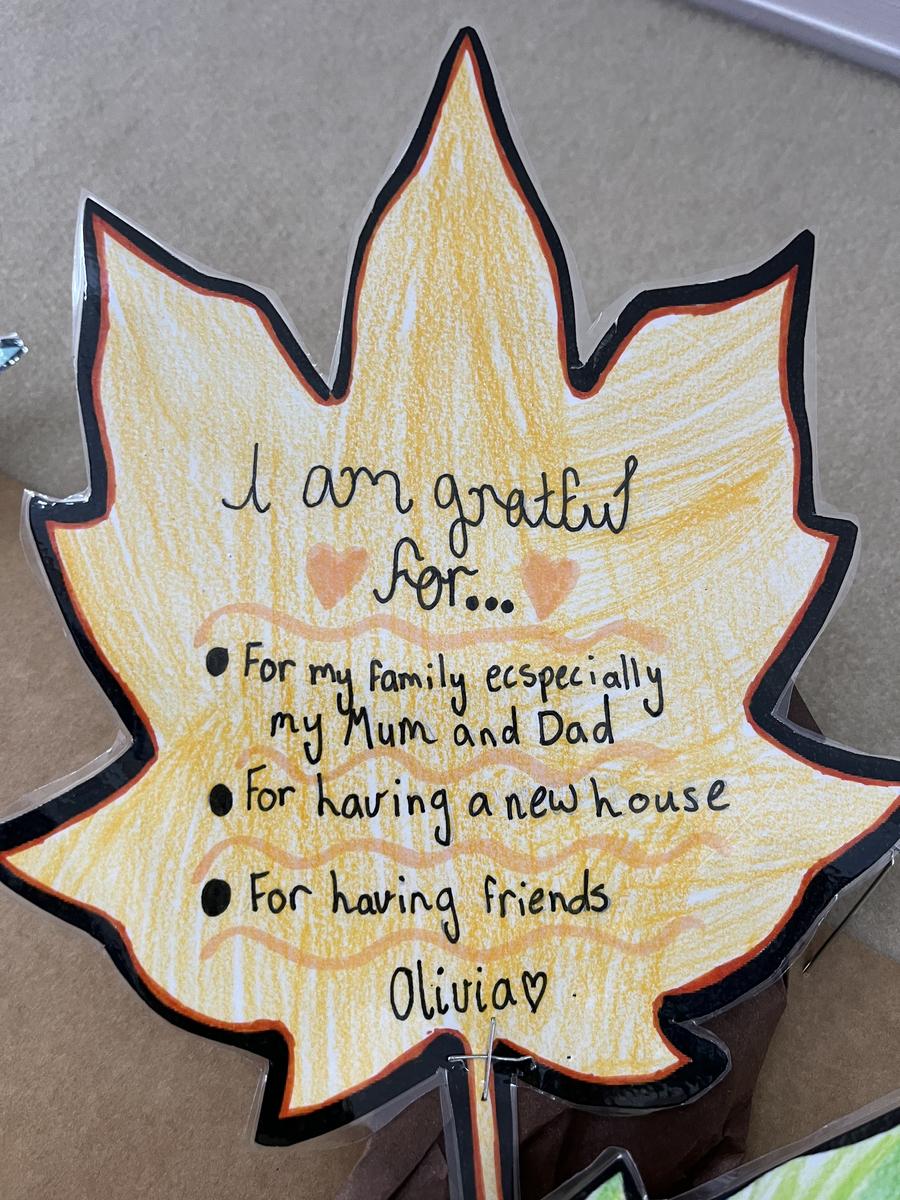 I am gratful
for...
• For my family ecspecially
my Mum and Dad
• For having a new house
• For having friends
Olivia♡